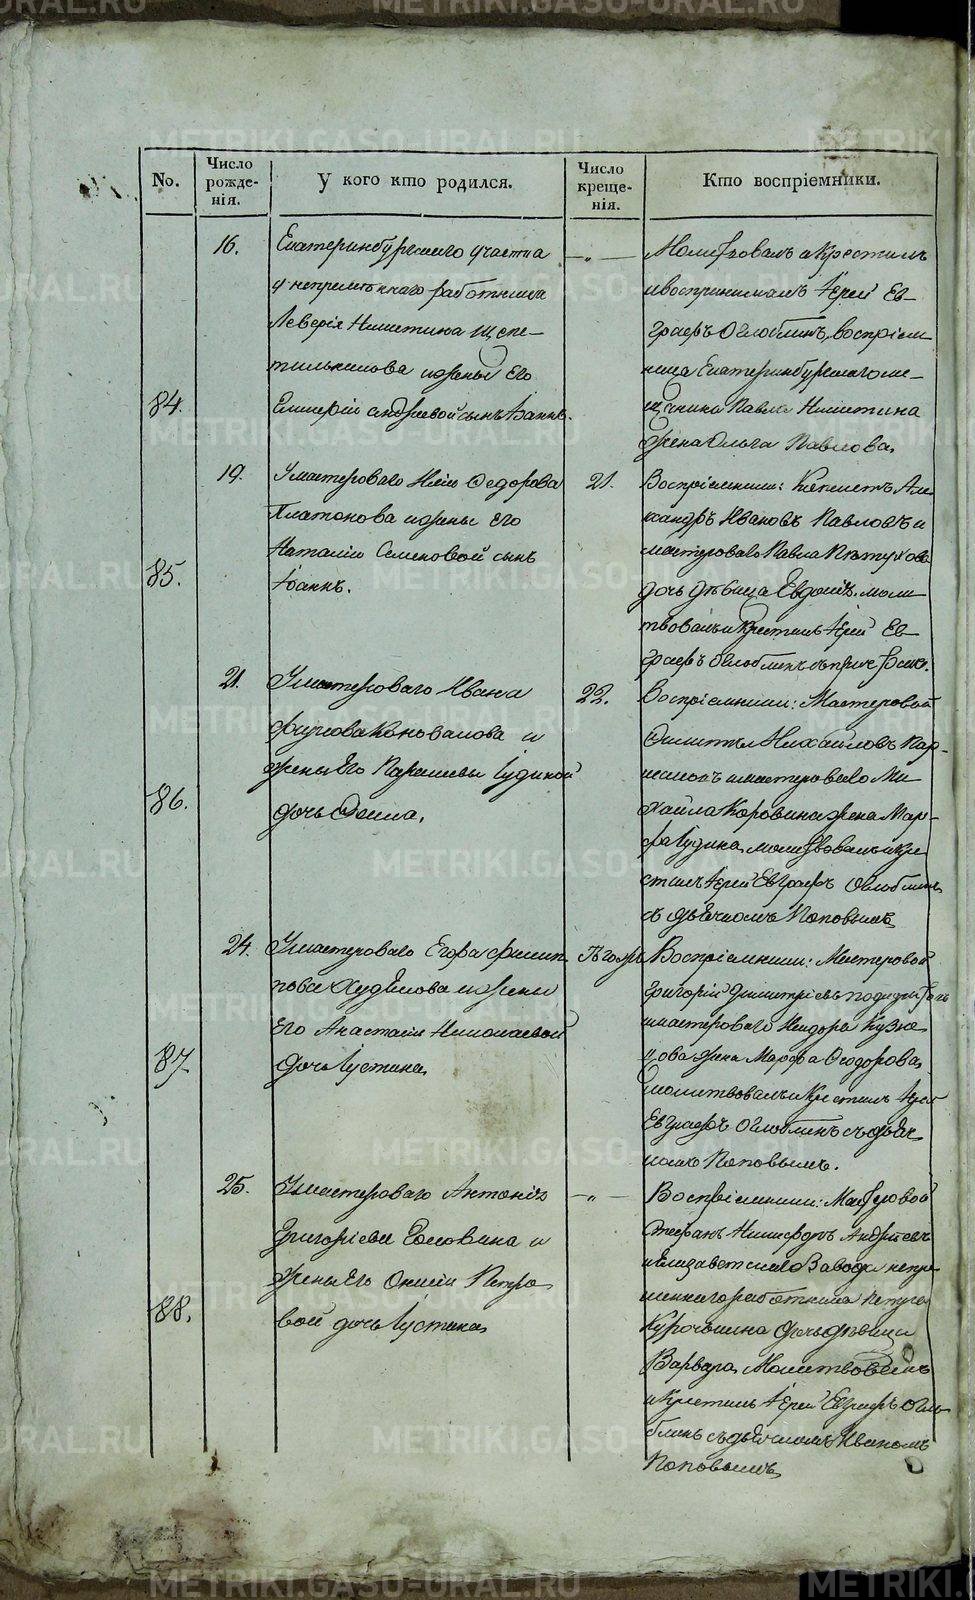 METRIKI.GASO-URAL.RU
No.
Число рожде-нія.
У кого кто родился.
Число креще-нія.
Кто воспріемники.
84.
16.
Екатеринбургскаго участка
у непременнаго работника
Аверія Никитина Щепе-
тильникова и жены его
Андреевой сынъ Іоаннъ.
— „ —
Молитвовалъ и крестилъ
и воспринималъ Іерей Ев-
графъ Оглоблинъ, воспріем-
ница Екатеринбургскаго ме-
щанина Павла Никитина
жена Ольга Павлова.
85.
19.
У мастероваго Ѳедорова
Платонова и жены его
Наталіи Семеновой сынъ
Іоаннъ.
21.
Воспріемники: Але-
ксандръ Ивановъ Павловъ и
мастероваго Павла Пѣтухова
дочь дѣвица Евдокія. моли-
твовалъ и крестилъ Іерей Ев-
графъ Оглоблинъ
86.
21.
У мастероваго Ивана
Коновалова и
жены его Параскевы Іудиной
дочь
22.
Воспріемники: Мастеровой
Михайловъ
и мастероваго Ми-
хаила Коровина жена Мар-
фа Іудина, молитвовалъ и кре-
стилъ Іерей Евграфъ Оглоблинъ
съ дьячкомъ Поповымъ
87.
24.
У мастероваго Егора Филип-
пова Худякова и жены
его Анастасіи Николаевой
дочь Іустина,
Воспріемники: Мастеровой
Григорій Димитріевъ
и мастероваго Кузне-
цова жена Марфа Ѳеодорова,
молитвовалъ и крестилъ Іерей
Евграфъ Оглоблинъ съ дьяч-
комъ Поповымъ.
88.
25.
У мастероваго Антонія
Григоріева Головина и
жены его Петро-
вой дочь Іустина,
— „ —
Воспріемники: Мастеровой
Стефанъ Андреевъ
и Елизаветскаго Завода непре-
меннаго работника Петра
Курочкина дочь дѣвица
Варвара, Молитвовалъ
и крестилъ Іерей Евграфъ Огло-
блинъ съ дьячкомъ Иваномъ
Поповымъ,